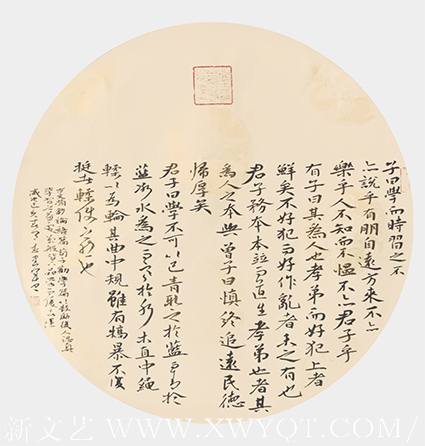 子曰學而時習之不
亦說乎有朋自遠方來不亦
樂乎人不知而不慍不亦君子乎
有子曰其為人也孝弟而好犯上者
鮮矣不好犯而好作亂者未之有也
君子務本本立而道生孝弟也者其
為人之本與曾子曰慎終追遠民德
歸厚矣
君子曰學不可以已青取之於藍而青於
藍冰水為之而寒於水木直中繩
輮以為輪其曲中規雖有槁暴不復
挺者輮使之然也
新文艺 WWW.XWYQT.COM